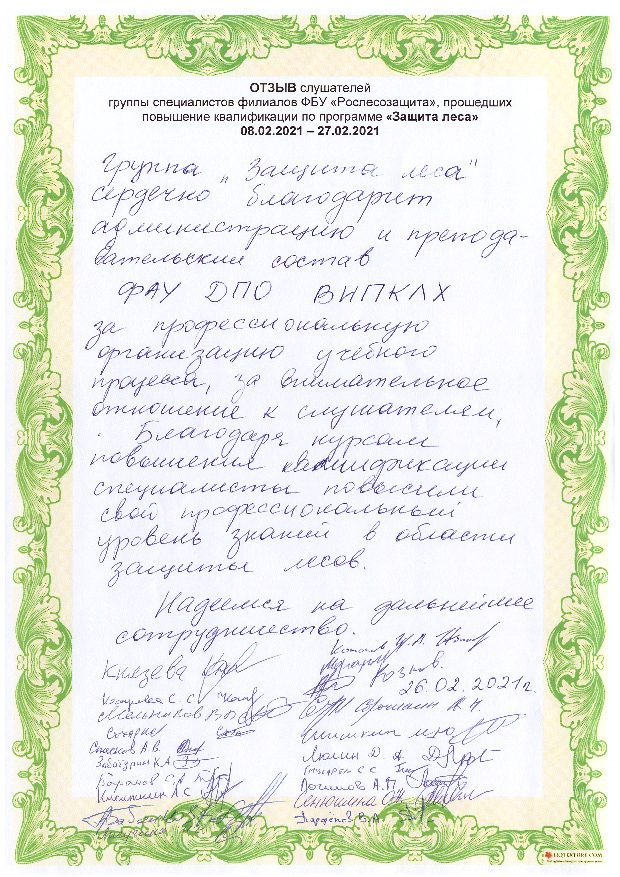 ОТЗЫВ слушателей
группы специалистов филиалов ФБУ «Рослесозащита», прошедших
повышение квалификации по программе «Защита леса»
08.02.2021 – 27.02.2021
Группа „Защита леса"
сердечно благодарит
администрацию и препода-
вательский состав
ФАУ ДПО ВИПКЛХ
за профессиональную
организацию учебного
процесса, за внимательное
отношение к слушателям,
Благодаря курсам
повышения квалификации
специалисты повысили
свой профессиональный
уровень знаний в области
защиты лесов.
Надеемся на дальнейшее
сотрудничество.
Князева
26.02.2021г.
Мельников
Спасков А.В.
Люлин Д. А.
Логинов А.П.
Сенюшкина
Парфенов В.А.